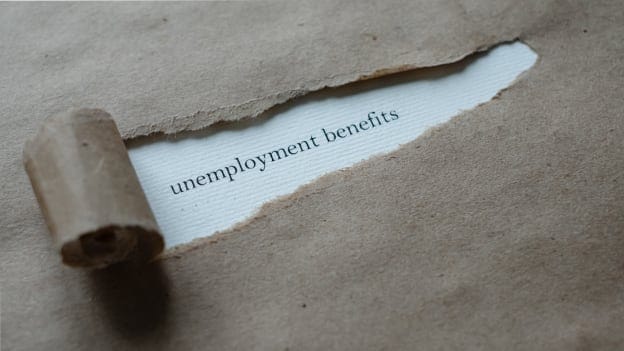 unemployment benefits